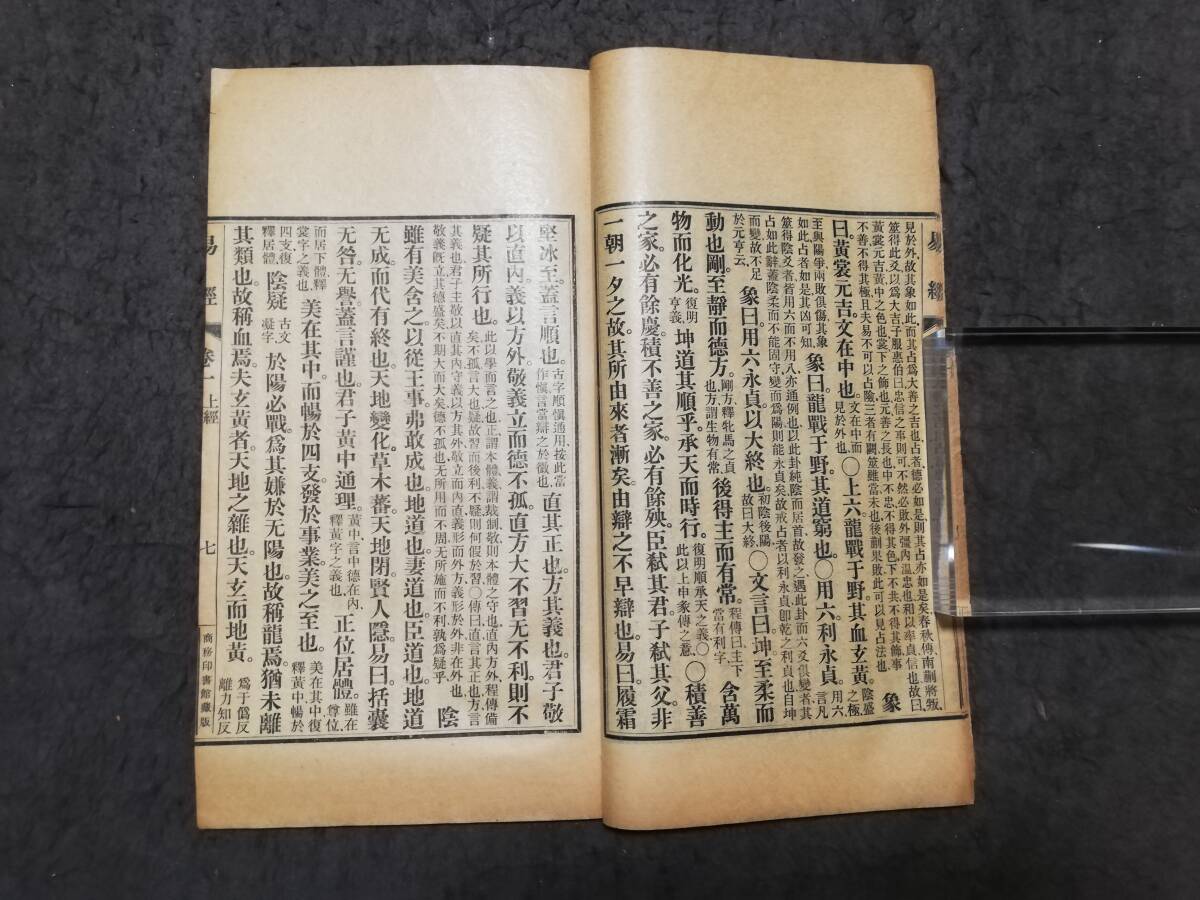 易經
見於外故其象如此而其占爲大善之吉也占者德必如是則其占亦如是矣春秋傳南蒯將叛
筮得此爻以爲大吉子服惠伯曰忠信之事則可不然必敗外彊內溫忠也和以率貞信也故曰
黃裳元吉黃中之色也裳下之飾也元善之長也中不忠不得其色下不共不得其飾事
不善不得其極且夫易不可以占險三者有闕筮雖當未也後蒯果敗此可以見占法也 象
曰黃裳元吉文在中也 文在中而見於外也 ○上六龍戰于野其血玄黃 陰盛之極
至與陽爭兩敗俱傷其象如此占者如是其凶可知 象曰龍戰于野其道窮也○用六利永貞 用六言凡
筮得陰爻者皆用六而不用八亦通例也以此卦純陰而居首故發之遇此卦而六爻俱變者其
占如此辭蓋陰柔而不能固守變而爲陽則能永貞矣故戒占者以利永貞卽乾之利貞也自坤
而變故不足於元亨云 象曰用六永貞以大終也 初陰後陽故曰大終 ○文言曰坤至柔而
動也剛至靜而德方 剛方釋牝馬之貞也方謂生物有常 後得主而有常 程傳曰主下當有利字 含萬
物而化光 復明亨義 坤道其順乎承天而時行 復明順承天之義○此以上申彖傳之意 ○積善
之家必有餘慶積不善之家必有餘殃臣弒其君子弒其父非
一朝一夕之故其所由來者漸矣由辯之不早辯也易曰履霜
堅冰至蓋言順也 古字順愼通用按此當作愼言當辯之於微也 直其正也方其義也君子敬
以直內義以方外敬義立而德不孤直方大不習无不利則不
疑其所行也 此以學而言之也正謂本體義謂裁制敬則本體之守也直內方外程傳備矣不孤言大也疑故習而後利不疑則何假於習○傳曰直言其正也方言
其義也君子主敬以直其內守義以方其外敬立而內直義形而外方義形於外非在外也
敬義旣立其德盛矣不期大而大矣德不孤也无所用而不周无所施而不利孰爲疑乎 陰
雖有美含之以從王事弗敢成也地道也妻道也臣道也地道
无成而代有終也天地變化草木蕃天地閉賢人隱易曰括囊
无咎无譽蓋言謹也君子黃中通理 黃中言中德在內釋黃字之義也 正位居體 雖在尊位
而居下體釋裳字之義也 美在其中而暢於四支發於事業美之至也 美在其中復釋黃中暢於
四支復釋居體 陰疑 古文凝字 於陽必戰爲其嫌於无陽也故稱龍焉猶未離
其類也故稱血焉夫玄黃者天地之雜也天玄而地黃 爲于僞反離力知反
易經 卷一 上經 七 商務印書館藏版